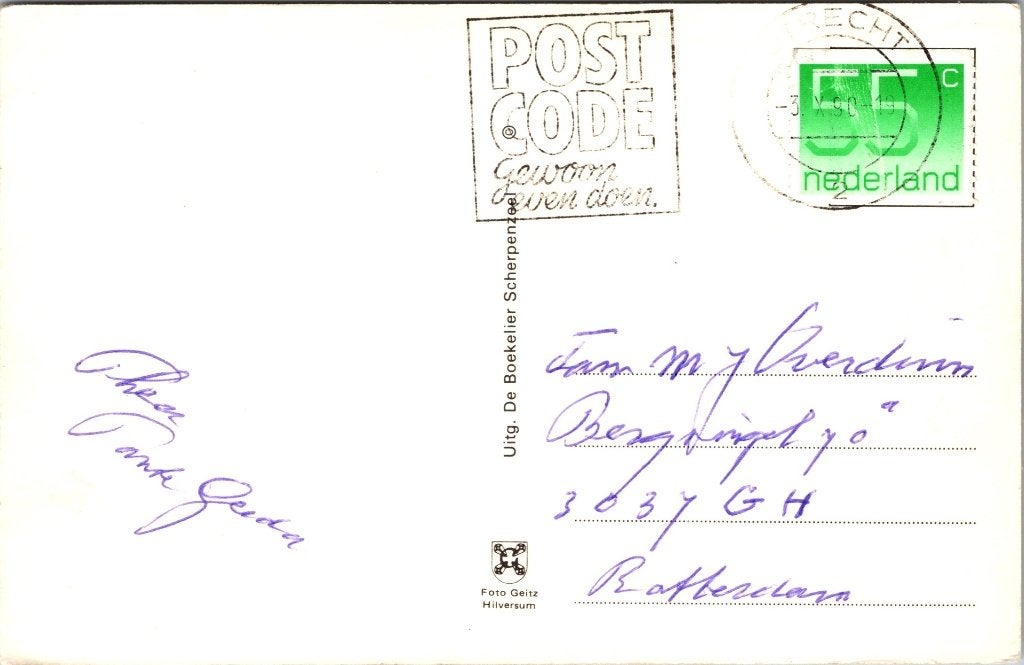 POST
CODE
Gewoon
even doen.
UTRECHT
-3.X.90-19
55 c
nederland
Thea
Tante Gerda
Uitg. De Boekelier Scherpenzeel
©
Fam M J Overduin
Bergsingel 70 a
3037 GH
Rotterdam
Foto Geitz
Hilversum